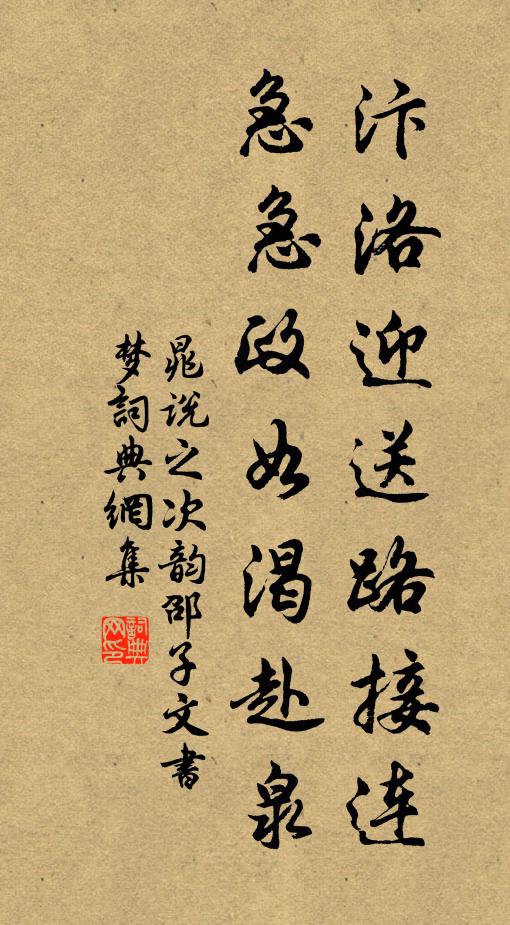 汴洛迎送路接连
急急政如渴赴泉
晁说之次韵邵子文书
梦词典網集
詞典
网印